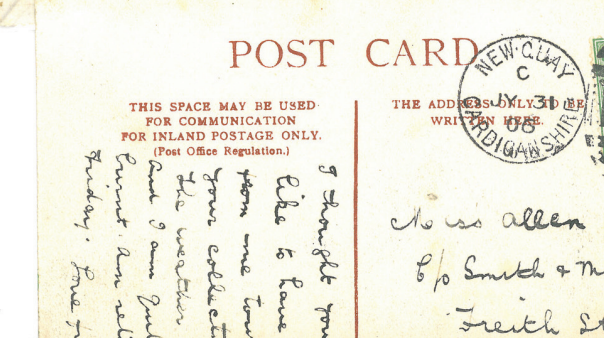 POST CARD
NEW·QUAY
C
JY 31
08
CARDIGANSHIRE
THIS SPACE MAY BE USED
FOR COMMUNICATION
FOR INLAND POSTAGE ONLY.
(Post Office Regulation.)
THE ADDRESS ONLY TO BE
WRITTEN HERE.
I thought you
like to have
from me
your collect
the weather
and I am
burnt. Am
Friday. Love
Miss Allen
C/o Smith & M
Freith St